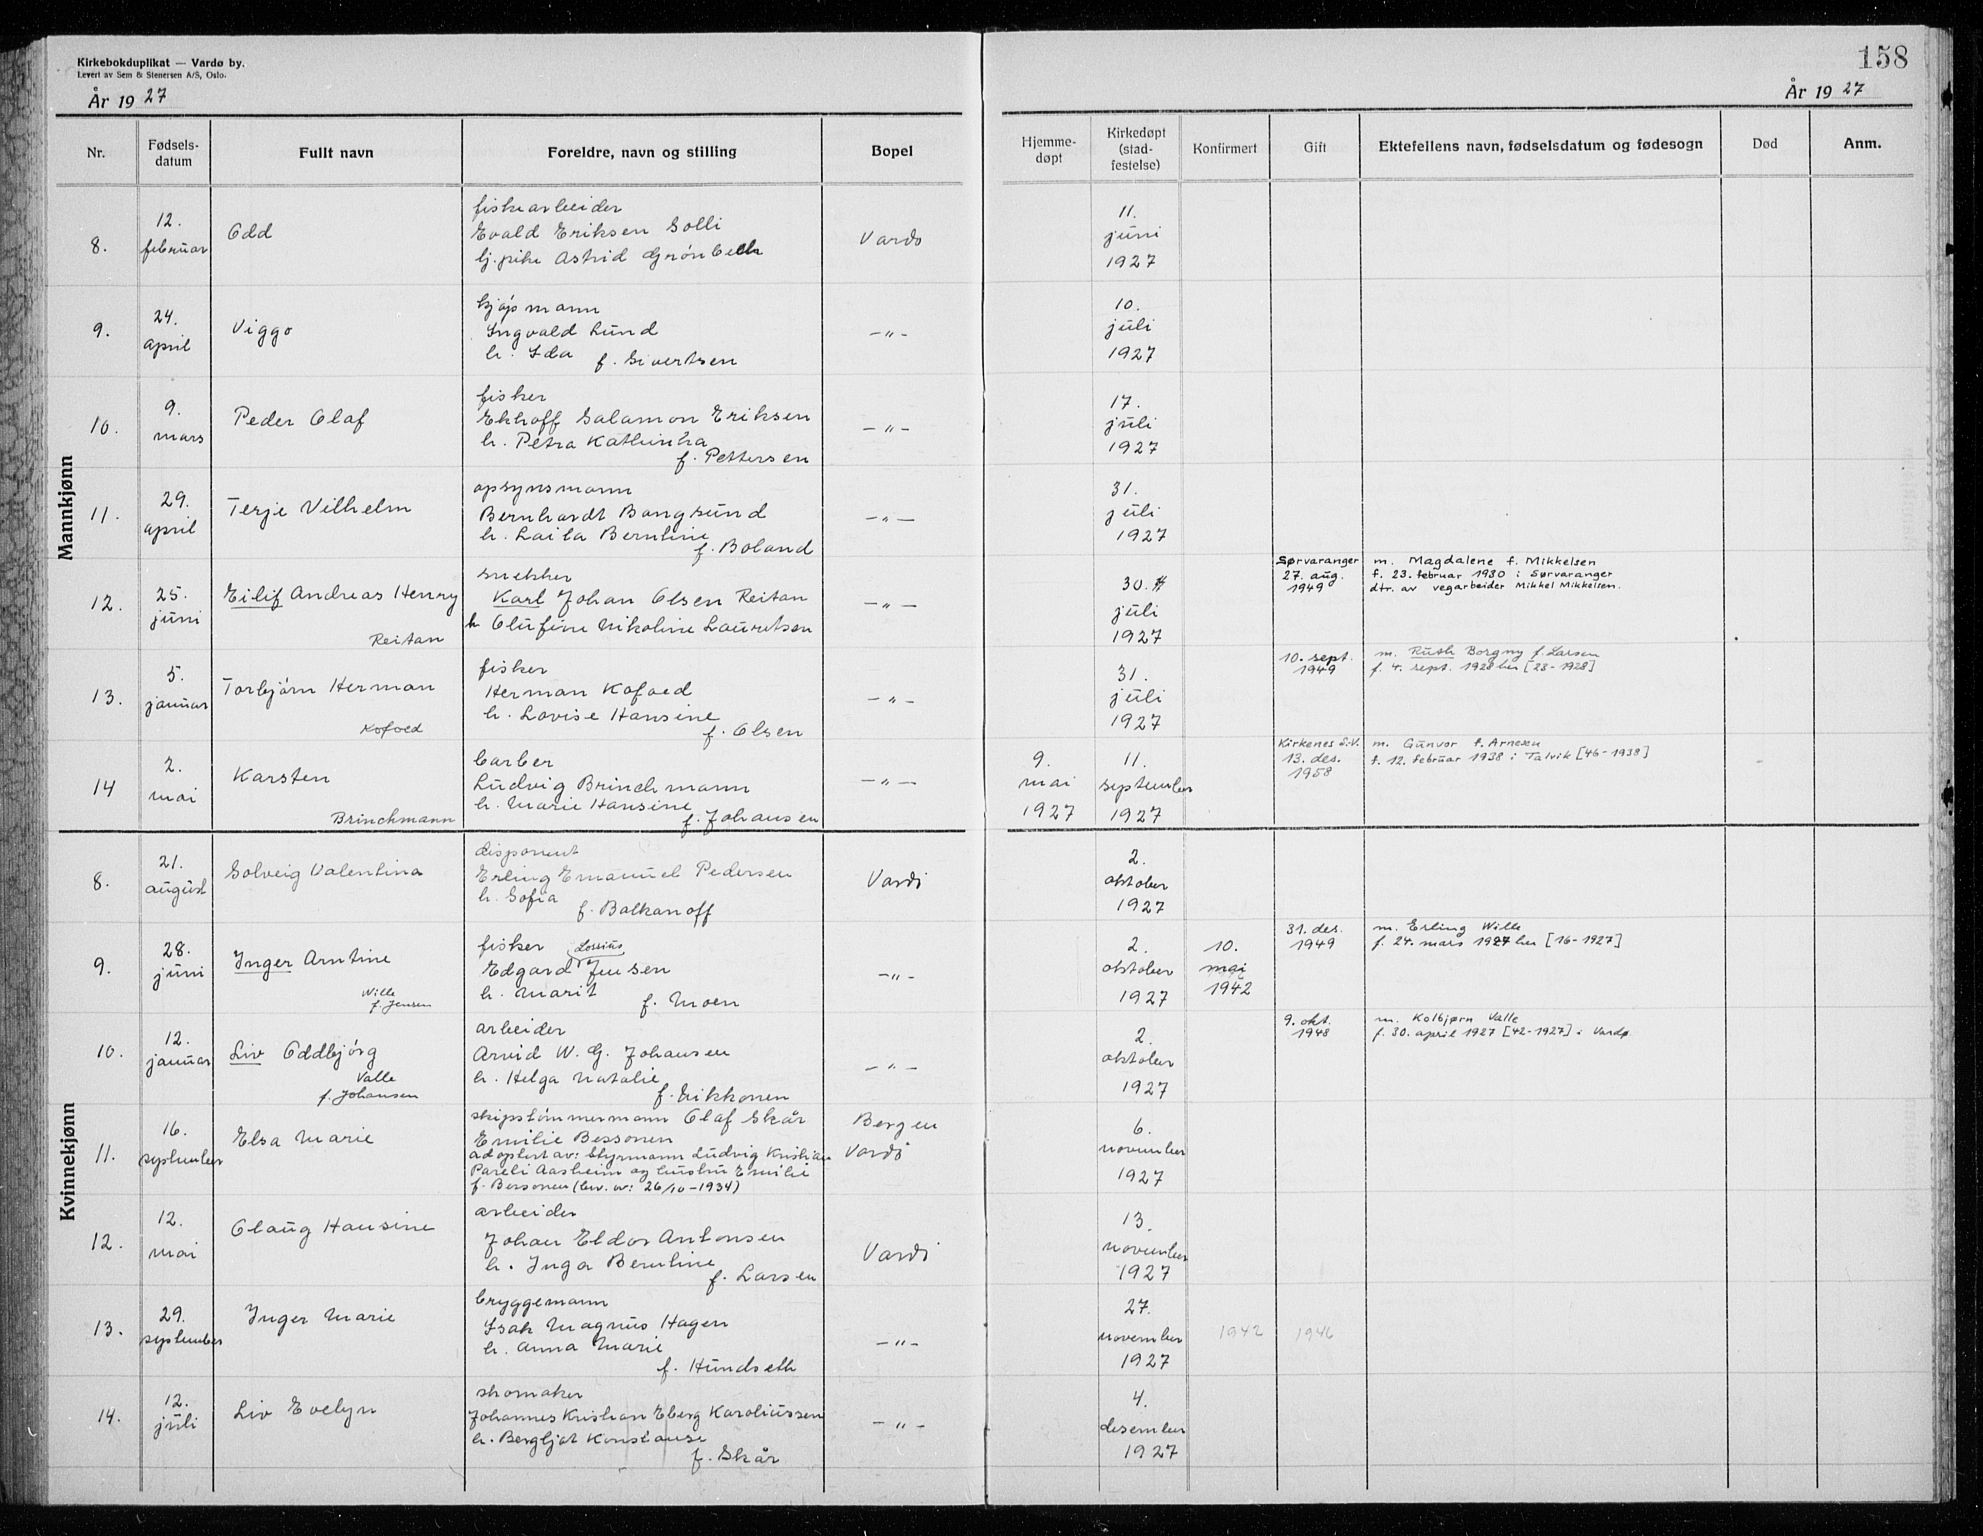 Kirkebokduplikat — Vardø by.
Levert av Sem & Stenersen A/S, Oslo.
År 1927
158
År 1927
Nr.
Fødsels-
datum
Fullt navn
Foreldre, navn og stilling
Bopel
Hjemme-
døpt
Kirkedøpt
(stad-
festelse)
Konfirmert
Gift
Ektefellens navn, fødselsdatum og fødesogn
Død
Anm.
Mannkjønn
8.
12.
februar
Odd
fiskearbeider
Evald Eriksen Solli
pike Astrid Grønbech
Vardø
11.
juni
1927
9.
24.
april
Viggo
kjøpmann
Ingvald Lund
h. Ida f. Sivertsen
—"—
10.
juli
1927
10.
9.
mars
Peder Olaf
fisker
Ekhoff Salamon Eriksen
h. Petra Kathinka
f. Pettersen
—"—
17.
juli
1927
11.
29.
april
Terje Vilhelm
opsynsmann
Bernhardt Bangsund
h. Laila Berntine
f. Boland
—"—
31.
juli
1927
12.
25.
juni
Eilif Andreas Henry
Reitan
snekker
Karl Johan Olsen Reitan
h Olufine Nikoline Lauritsen
—"—
30.
juli
1927
Sørvaranger
27. aug.
1949
m. Magdalene f. Mikkelsen
f. 23. februar 1930 i Sørvaranger
dtr. av vegarbeider Mikkel Mikkelsen.
13.
5.
januar
Torbjørn Herman
Kofoed
fisker
Herman Kofoed
h. Lovise Hansine
f. Olsen
—"—
31.
juli
1927
10. sept.
1949
m. Ruth Borgny f. Larsen
f. 4. sept. 1928 her [23-1928]
14
2.
mai
Karsten
Brinchmann
barber
Ludvig Brinchmann
h. Marie Hansine
f. Johansen
—"—
9.
mai
1927
11.
september
1927
Kirkenes S.V.
13. des.
1958
m. Gunvor f. Arnesen
f. 12. februar 1938 i Talvik [46-1938]
Kvinnekjønn
8.
21.
august
Solveig Valentina
disponent
Erling Emanuel Pedersen
h. Sofia
f. Balkanoff
Vardø
2.
oktober
1927
9.
28.
juni
Inger Arntine
Wille
f. Jensen
fisker
Lossius
Edgard Jensen
h. Marit
f. Moen
—"—
2.
oktober
1927
10.
mai
1942
31. des.
1949
m. Erling Wille
f. 24. mars 1927 her [16-1927]
10.
12.
januar
Liv Oddbjørg
Valle
f. Johansen
arbeider
Arvid W. G. Johansen
h. Helga Natalie
f. Nikkonen
—"—
2.
oktober
1927
9. okt.
1948
m. Kolbjørn Valle
f. 30. april 1927 [42-1927] i Vardø
11.
16.
september
Elsa Marie
skipstømmermann Olaf Skår
Emilie Bessonen
adoptert av: styrmann Ludvig Kristian
Pareli Aasheim og hustru Emilie
f. Bessonen (bev. av: 26/10-1934)
Bergen
Vardø
6.
november
1927
12.
12.
mai
Olaug Hansine
arbeider
Johan Eldor Antonsen
h. Inga Berntine
f. Larsen
Vardø
13.
november
1927
13.
29.
september
Inger Marie
bryggemann
Isak Magnus Hagen
h. Anna Marie
f. Hundseth
—"—
27.
november
1927
1942
1946
14.
12.
juli
Liv Evelyn
skomaker
Johannes Kristian Eberg Karoliussen
h. Bergljot Konstanse
f. Skår
—"—
4.
desember
1927